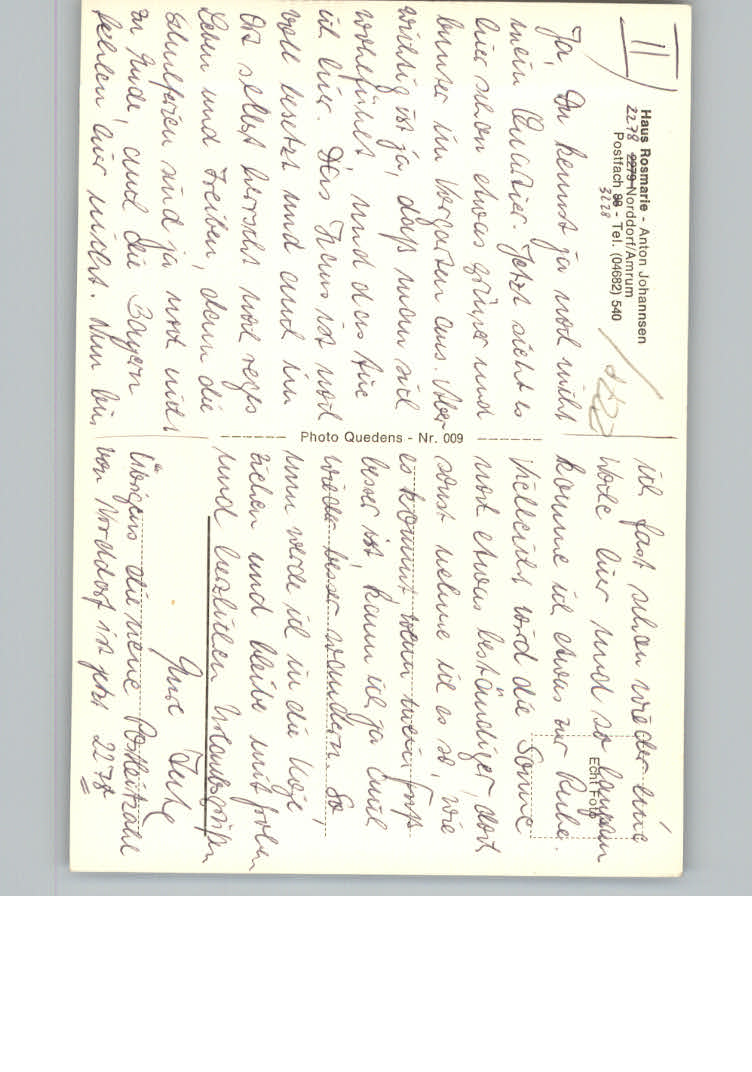 II)
Haus Rosmarie - Anton Johannsen
2278 2279 Norddorf/Amrum
Postfach 98 - Tel. (04682) 540
3228
Ja, Du kennst ja noch nicht
mein Quartier. Jetzt sieht es
hier schon etwas grüner und
bunter im Vorgarten aus. Aber
wichtig ist ja, daß man sich
wohlfühlt, und das tue
ich hier. Das Haus ist noch
voll besetzt und auch im
Ort selbst herrscht noch reges
Leben und Treiben, denn die
Schulferien sind ja noch nicht
zu Ende, auch die Bayern
fehlen hier nicht. Nun bin
Photo Quedens - Nr. 009
ich fast schon wieder eine
Woche hier und so langsam
komme ich etwas zur Ruhe.
Vielleicht wird die Sonne
noch etwas beständiger, doch
sonst nehme ich es so, wie
es kommt. Wenn mein Fuß
besser ist, kann ich ja auch
wieder besser wandern. So,
nun werde ich in die Koje
ziehen und bleibe mit frohen
und herzlichen Urlaubsgrüßen
Eure
Übrigens die neue Postleitzahl
von Norddorf ist jetzt 2278
Echt Foto